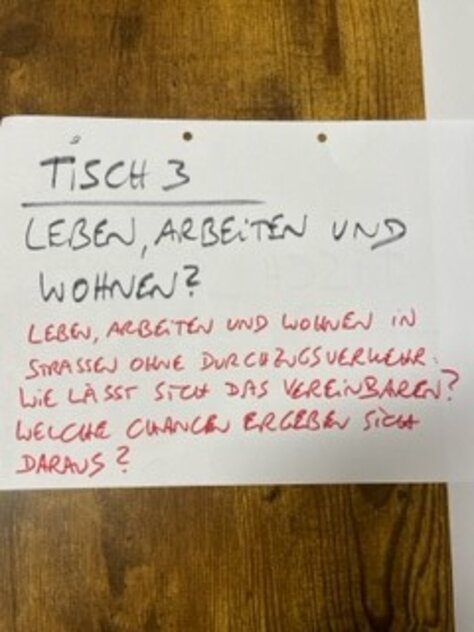 TISCH 3
LEBEN, ARBEITEN UND
WOHNEN?
LEBEN, ARBEITEN UND WOHNEN IN
STRASSEN OHNE DURCHZUGSVERKEHR.
WIE LÄSST SICH DAS VEREINBAREN?
WELCHE CHANCEN ERGEBEN SICH
DARAUS?